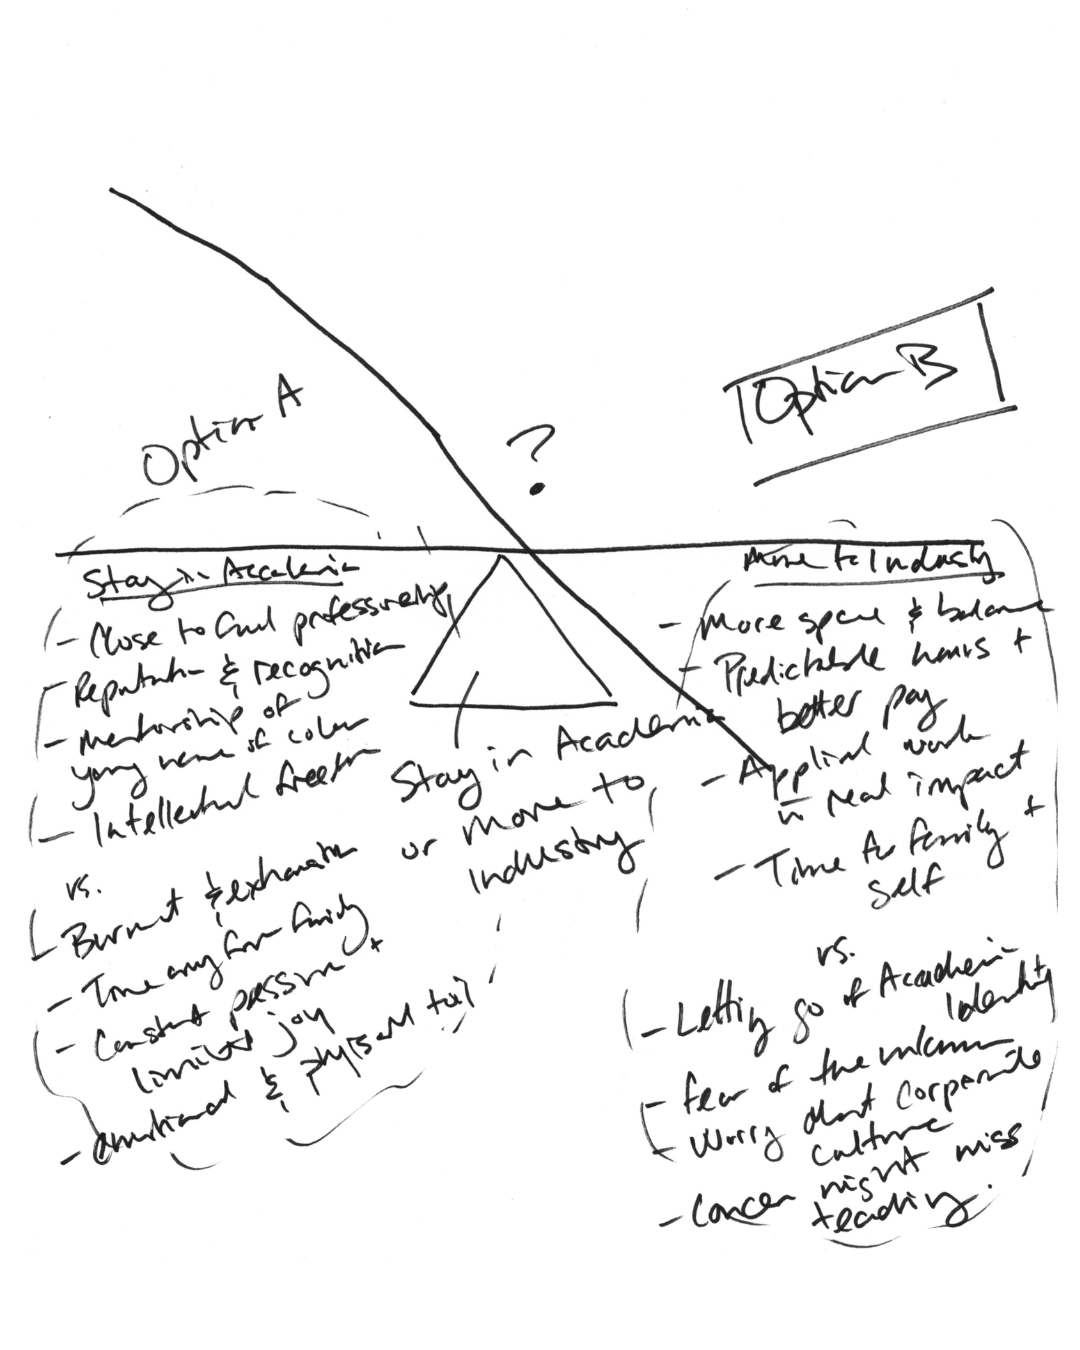 Option A
?
Option B
Stay in Academia
- Close to full professorship
- Reputation & recognition
- Mentorship of
young of color
- Intellectual freedom
vs.
- Burnout & exhaustion
- Time away from family
- Constant pressure +
limited joy
- emotional & physical toil
Stay in Academia
or move to
Industry
Move to Industry
- More space & balance
- Predictable hours +
better pay
- Applied work
in real impact
- Time for family +
self
vs.
- Letting go of Academic
Identity
- fear of the unknown
- Worry about corporate
culture
- Concern might miss
teaching.